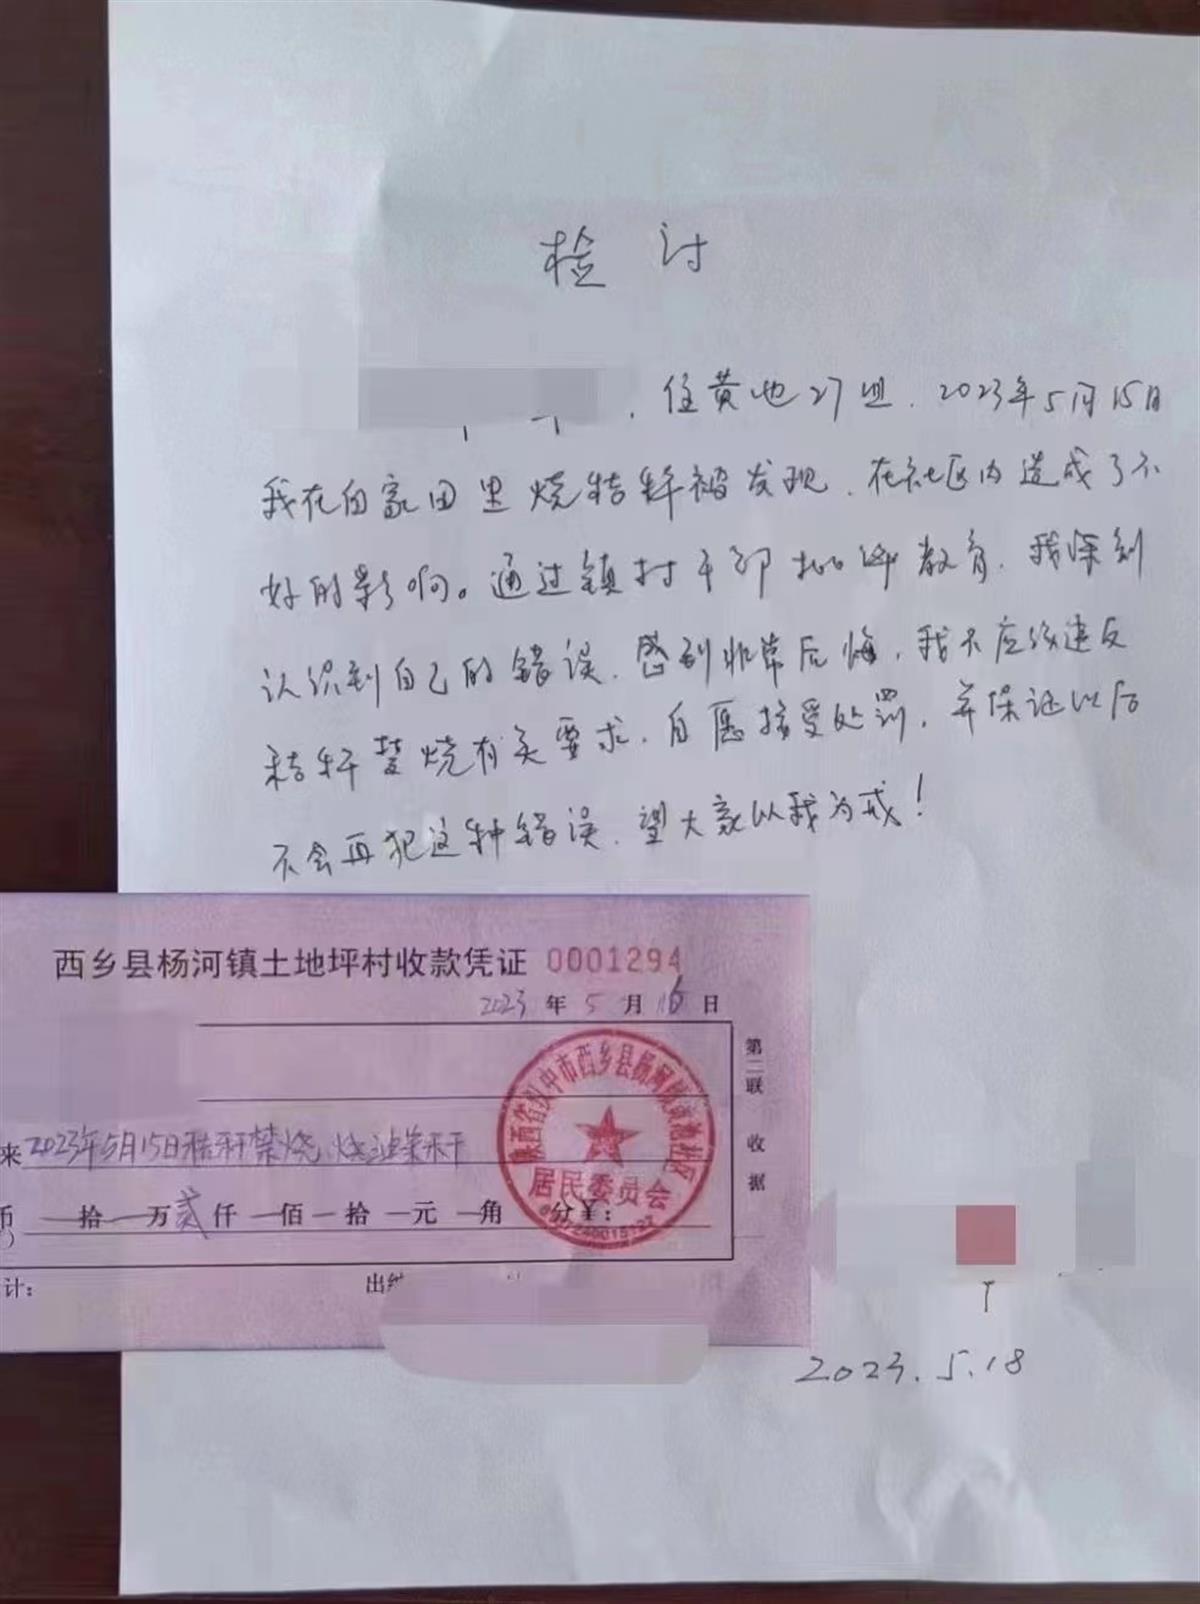 检讨
，住黄池27组，2023年5月15日
我在自家田里烧秸秆被发现，在社区内造成了不
好的影响。通过镇村干部批评教育，我深刻
认识到自己的错误，感到非常后悔，我不应该违反
秸秆禁烧有关要求，自愿接受处罚，并保证以后
不会再犯这种错误，望大家以我为戒！
西乡县杨河镇土地坪村收款凭证 0001294
2023年5月16日
来2023年5月15日秸秆禁烧，烧油菜禾干
币 拾 万贰仟 佰 拾 元 角 分￥：
计： 出
第二联 收据
陕西省汉中市西乡县杨河镇黄池社区
居民委员会
2023.5.18